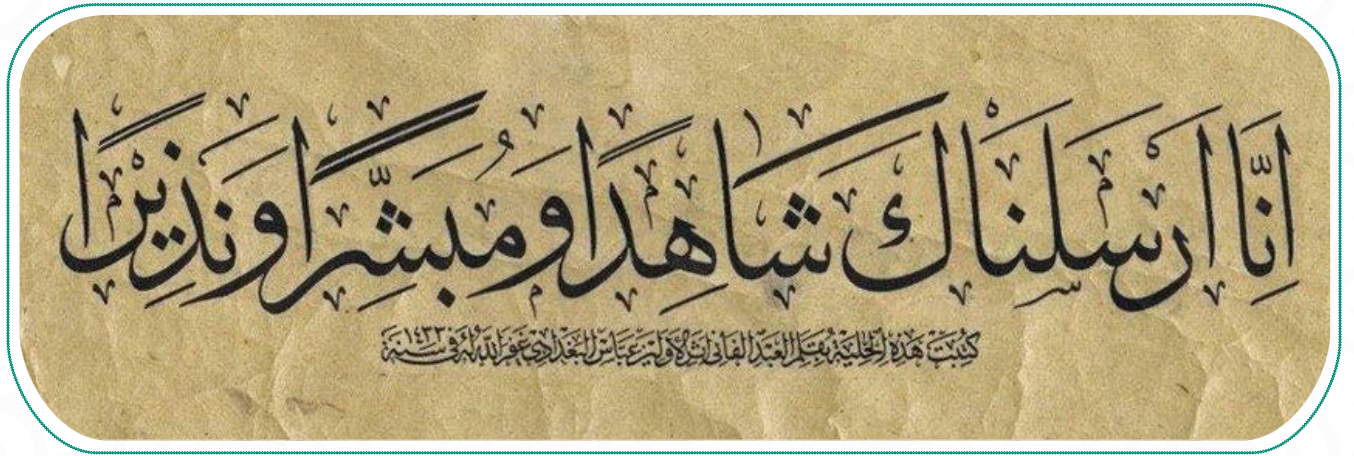 اِنَّا اَرْسَلْنَاكَ شَاهِدًا وَمُبَشِّرًا وَنَذِيْرًا
كُتِبَتْ هَذِهِ الْحِلْيَةُ بِقَلَمِ الْعَبْدِ الْفَانِي عَبَّاسِ الْبَغْدَادِي غَفَرَ اللهُ لَهُ فِي سَنَةِ ١٤٣٢